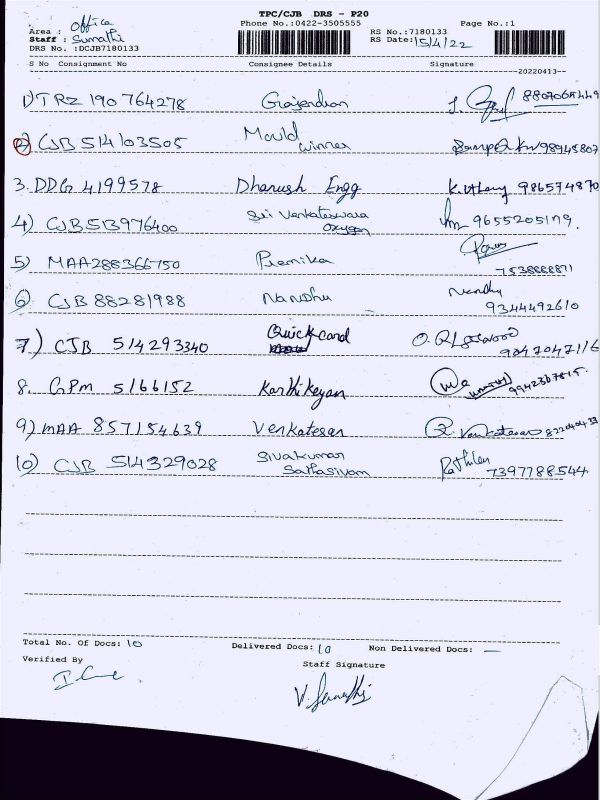 TPC/CJB DRS - P20
Phone No.:0422-3505555 Page No.:1
Area : Office
Staff : Sumathi
DRS No. :DCJB7180133
RS No.:7180133
RS Date:15/4/22
S No Consignment No Consignee Details Signature
20220413
1) TRZ 190 764278 Gajendran
2) CJB 514103505 Mould winner
3. DDG 4199578 Dhanush Engg 986574870
4) CJB 513976400 Sri Venkateswara Oxygen 9655205179.
5) MAA288366750 Premika 7538888871
6) CJB 88281988 Nandhu Nandhu 9344492610
7) CJB 514293340 Quick card 9047047116
8. GPM 5166152 Karthikeyan
9) MAA 857154639 Venkatesan R. Venkatesan
10) CJB 514329028 Sivakumar Sathasivam 7397788544
Total No. Of Docs: 10 Delivered Docs: 10 Non Delivered Docs: —
Verified By Staff Signature
V. Sumathi